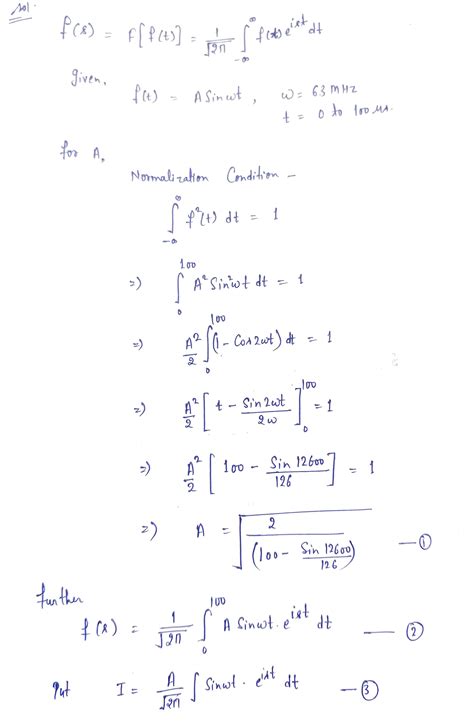 Sol.
f(s) = F[f(t)] = 1/√2π ∫_{-∞}^{∞} f(t) e^{ist} dt
Given,
f(t) = A Sin ωt , ω = 63 MHz
t = 0 to 100 μs.
for A,
Normalization Condition –
∫_{-∞}^{∞} f²(t) dt = 1
=) ∫_0^{100} A² Sin²ωt dt = 1
=) A²/2 ∫_0^{100} (1 - Cos 2ωt) dt = 1
=) A²/2 [ t - Sin 2ωt / 2ω ]_0^{100} = 1
=) A²/2 [ 100 - Sin 12600 / 126 ] = 1
=) A = √( 2 / (100 - Sin 12600 / 126) ) — ①
further
f(s) = 1/√2π ∫_0^{100} A Sin ωt . e^{ist} dt — ②
Put I = A/√2π ∫ Sin ωt . e^{ist} dt — ③